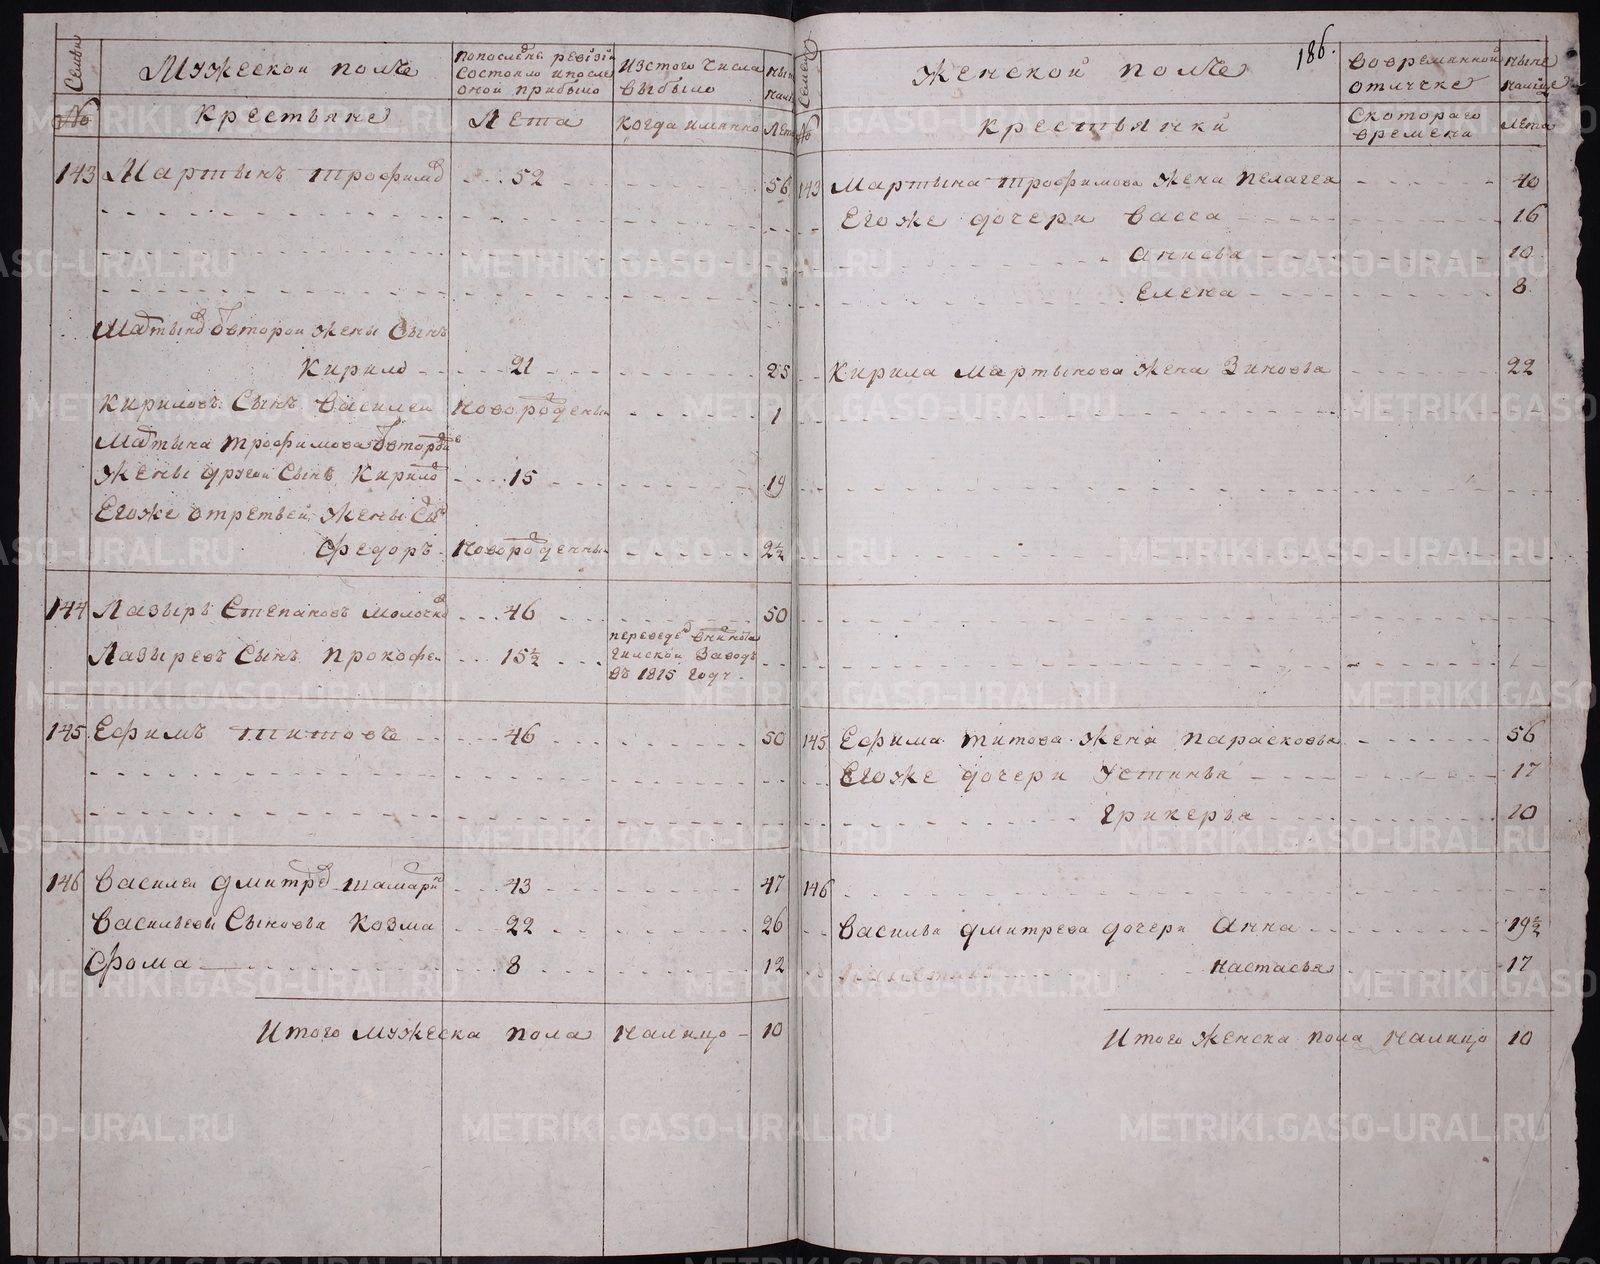 Семьи
№
Мужеской полъ
Крестьяне
попоследн. ревизіи
состояло ипосле
оной прибыло
Лета
Изтого числа
выбыло
когда имянно
ныне
Лета
143 Мартынъ Трофимов 52 56
Мартына отвторой жены Сынъ
Кирило 21 25
Кириловъ Сынъ Василей новорожденый 1
Мартына Трофимова отвторой
жены другой Сынъ Кирило 15 19
Егоже отретьей жены Сын
Федоръ новорожденный 2½
144 Лазырь Степановъ Молочков 46 50
Лазыревъ Сынъ Прокофей 15½
переведен внижнета
гилской Заводъ
въ 1815 году
145 Ефимъ Титовъ 46 50
146 Василей Дмитрев Шамарин 43 47
Васильевы Сыновья Козма 22 26
Фома 8 12
Итого мужеска пола налицо 10
186.
Семьи
№
Женской полъ
Крестьянки
вовременной
отлучке
Скотораго
времени
ныне
налицо
Лета
143 Мартына Трофимова жена Пелагея 40
Егоже дочери Васса 16
10
Елена 8
Кирила Мартынова жена Зиновья 22
145 Ефима Титова жена Парасковья 56
Егоже дочери Устинья 17
Грикерья 10
146
Василья Дмитрева дочери Анна 19½
Настасья 17
Итого женска пола налицо 10
METRIKI.GASO-URAL.RU